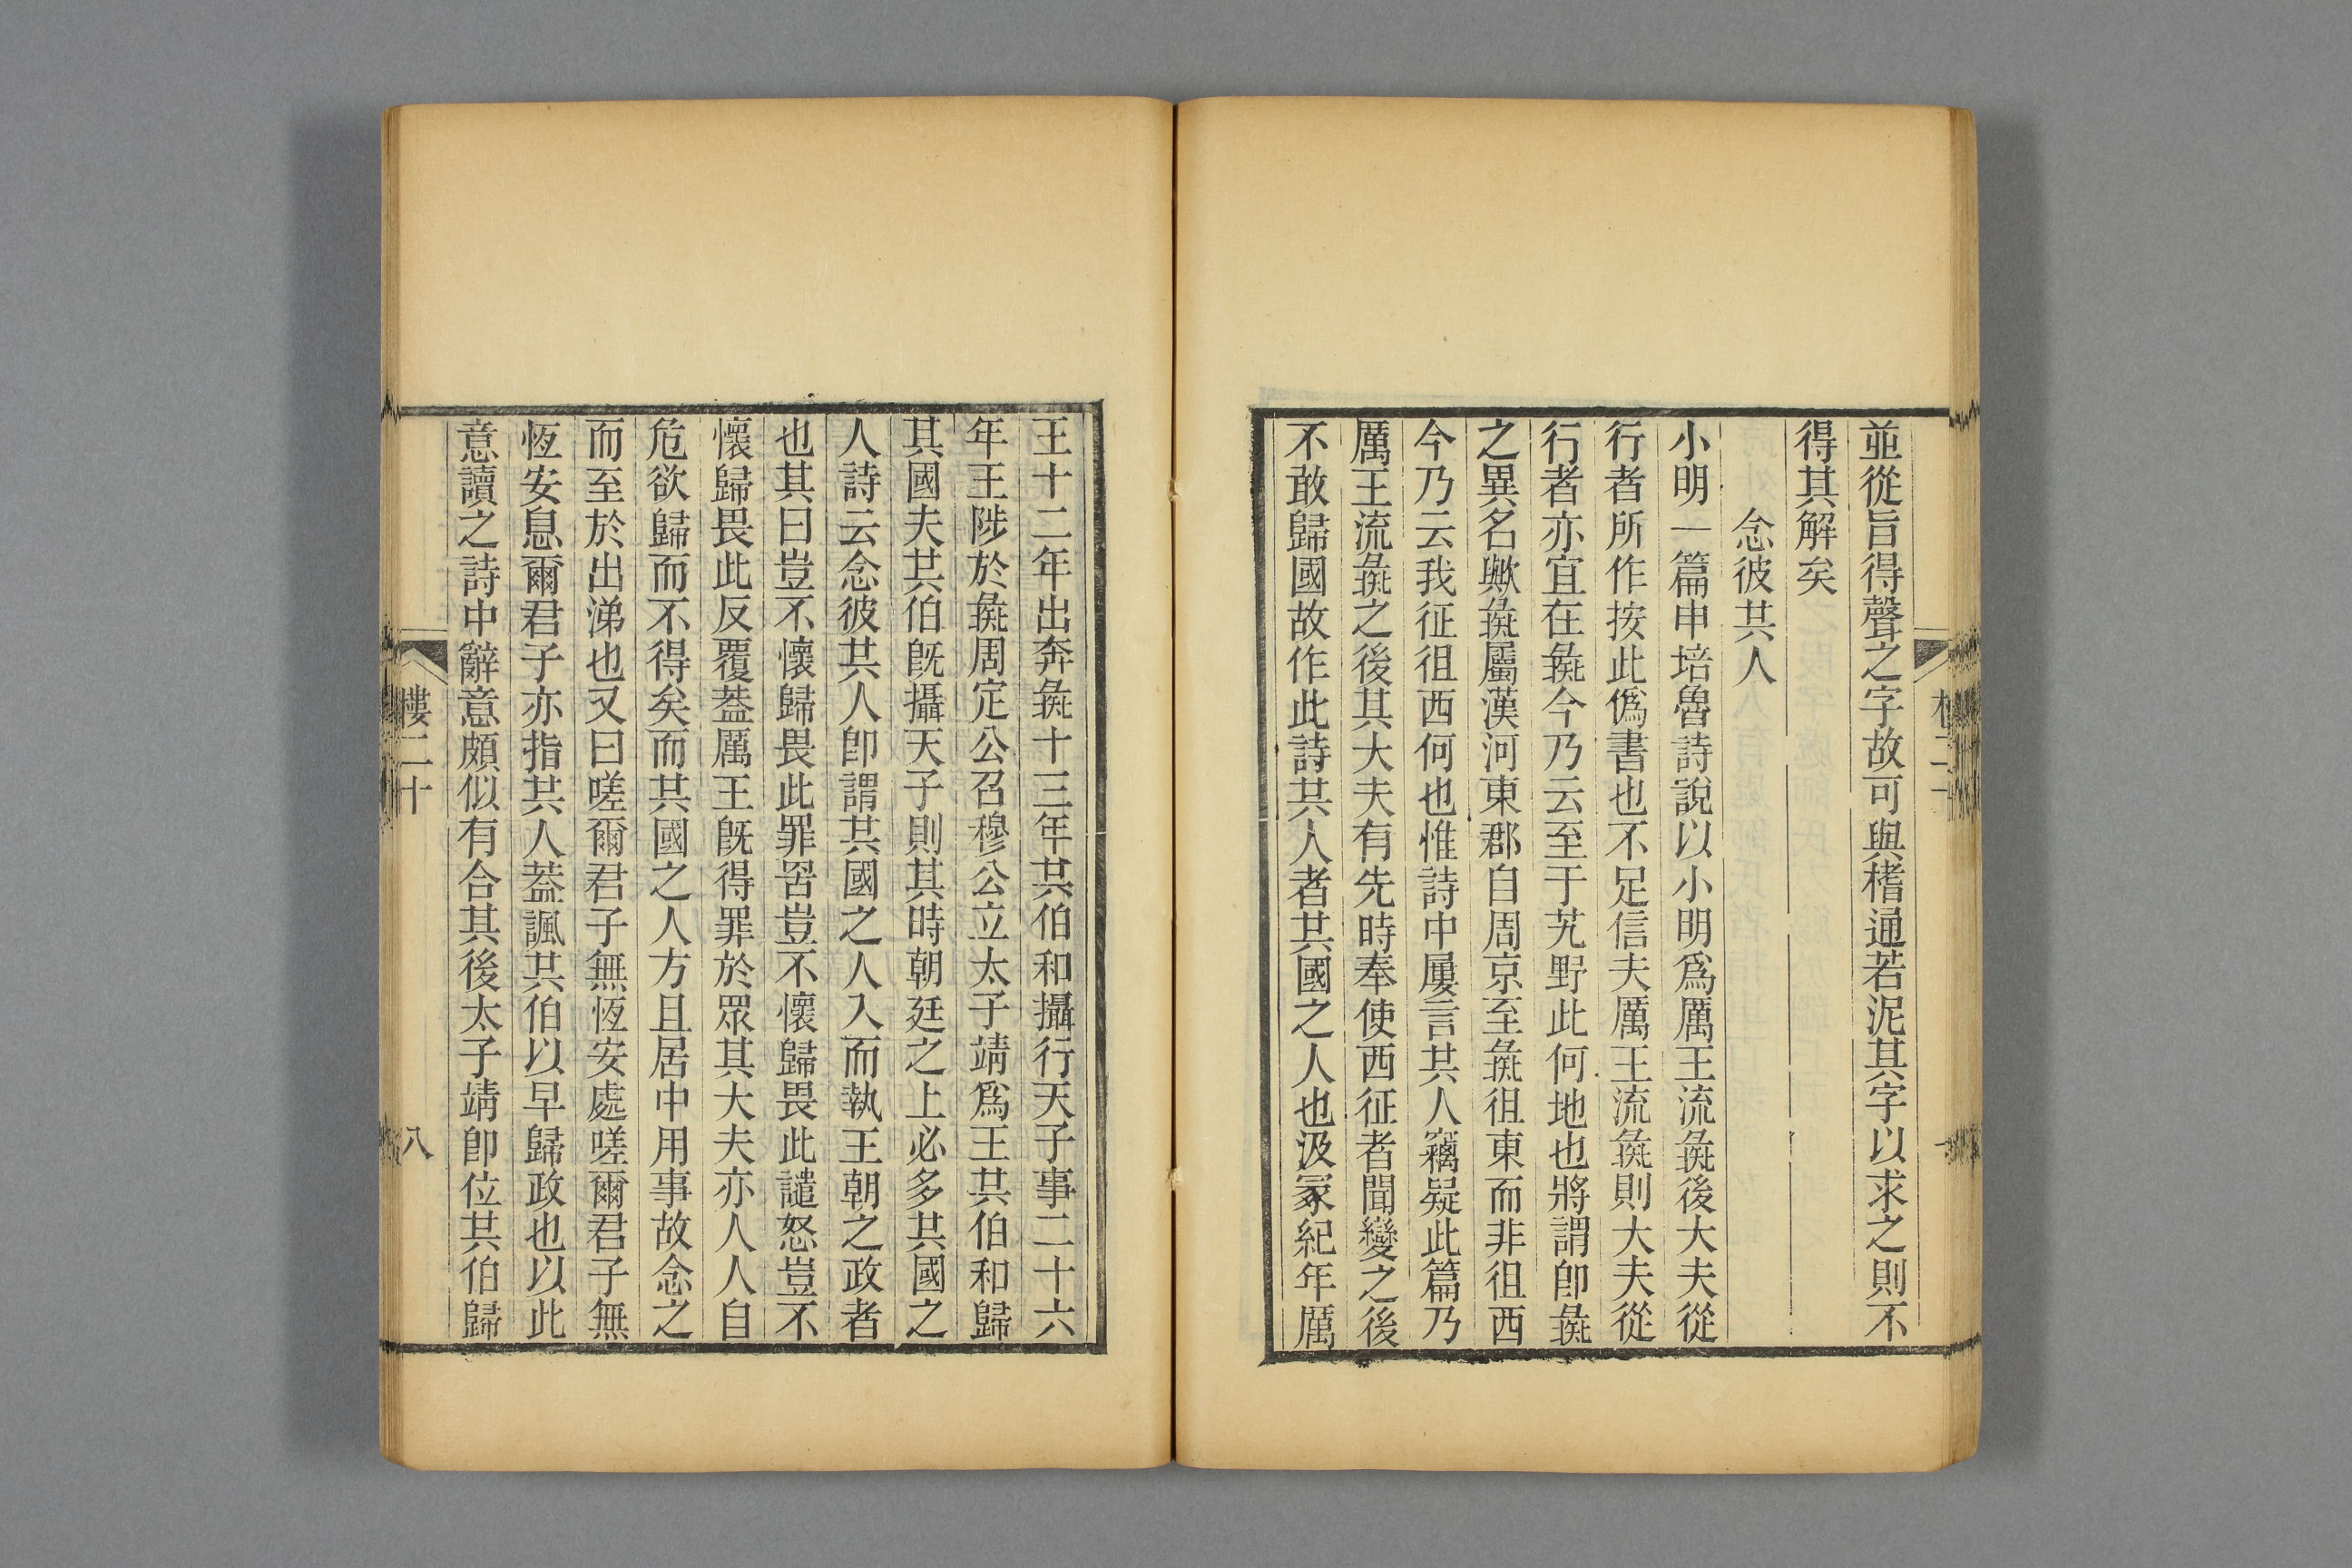 並從旨得聲之字故可與稽通若泥其字以求之則不
得其解矣
念彼共人
小明一篇申培魯詩說以小明爲厲王流彘後大夫從
行者所作按此僞書也不足信夫厲王流彘則大夫從
行者亦宜在彘今乃云至于艽野此何地也將謂卽彘
之異名歟彘屬漢河東郡自周京至彘徂東而非徂西
今乃云我征徂西何也惟詩中屢言共人竊疑此篇乃
厲王流彘之後其大夫有先時奉使西征者聞變之後
不敢歸國故作此詩共人者共國之人也汲冢紀年厲
王十二年出奔彘十三年共伯和攝行天子事二十六
年王陟於彘周定公召穆公立太子靖爲王共伯和歸
其國夫共伯旣攝天子則其時朝廷之上必多共國之
人詩云念彼共人卽謂共國之人入而執王朝之政者
也其曰豈不懷歸畏此罪罟豈不懷歸畏此譴怒豈不
懷歸畏此反覆蓋厲王旣得罪於眾其大夫亦人人自
危欲歸而不得矣而共國之人方且居中用事故念之
而至於出涕也又曰嗟爾君子無恆安處嗟爾君子無
恆安息爾君子亦指共人蓋諷共伯以早歸政也以此
意讀之詩中辭意頗似有合其後太子靖卽位共伯歸
樓二十
八